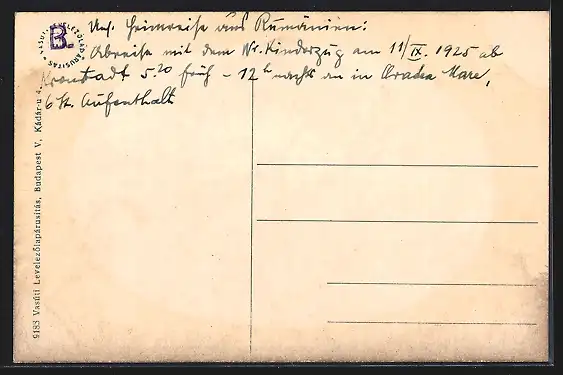 Uns. Heimreise aus Rumänien:
Abreise mit dem Wr. Kinderzug am 11/IX. 1925 ab
Kronstadt 5.20 früh – 12 h nachts an in Oradea Mare,
6 St. Aufenthalt
B
VASUTI LEVELEZŐLAPÁRUSITÁS
9183 Vasúti Levelezőlapárusitás, Budapest V, Kádár-u 4.